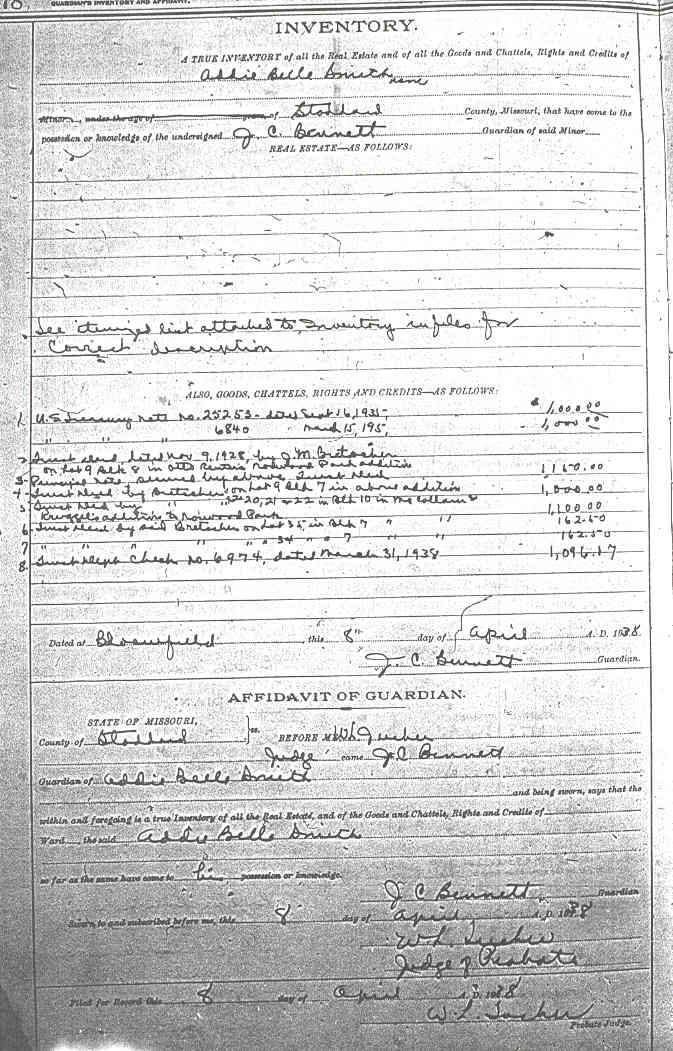 GUARDIAN'S INVENTORY AND AFFIDAVIT.
INVENTORY.
A TRUE INVENTORY of all the Real Estate and of all the Goods and Chattels, Rights and Credits of
Addie Belle Smith
Minor , under the age of years of Stoddard County, Missouri, that have come to the
possession or knowledge of the undersigned J. C. Bennett Guardian of said Minor
REAL ESTATE—AS FOLLOWS:
See itemized list attached to Inventory in files for
Correct description
ALSO, GOODS, CHATTELS, RIGHTS AND CREDITS—AS FOLLOWS:
1. U.S. Treasury Note No. 25253- dated Sept 16, 1935- $1,000.00
" " " 6840 March 15, 195 1,000.00
2 Trust deed, dated Nov 9, 1928, by J. M. Bretscher
on Lot 9 Blk 8 in Otto Park addition 1160.00
3- Principal note secured by above Trust Deed
4- Trust Deed by Bretscher on Lot 9 Blk 7 in above addition 1,000.00
5 Trust Deed by " 20, 21 & 22 in Blk 10 in McCollum &
addition to Norwood Park 1,100.00
6- Trust Deed by said Bretscher on Lot 35 in Blk 7 " " 162.50
7 " " " " " 34 " " 7 " " 162.50
8. Trust Dept Check No. 6974, dated March 31, 1938 1,096.17
Dated at Bloomfield this 8" day of April A. D. 1938
J. C. Bennett Guardian.
AFFIDAVIT OF GUARDIAN.
STATE OF MISSOURI,
County of Stoddard ss. BEFORE ME
Judge came J C Bennett
Guardian of Addie Belle Smith
and being sworn, says that the
within and foregoing is a true Inventory of all the Real Estate, and of the Goods and Chattels, Rights and Credits of
Ward , the said Addie Belle Smith
so far as the same have come to his possession or knowledge.
J C Bennett Guardian
Sworn to and subscribed before me, this 8 day of April A. D. 1938
W. L.
Judge of Probate
Filed for Record this 8 day of April A. D. 1938
W. L.
Probate Judge.